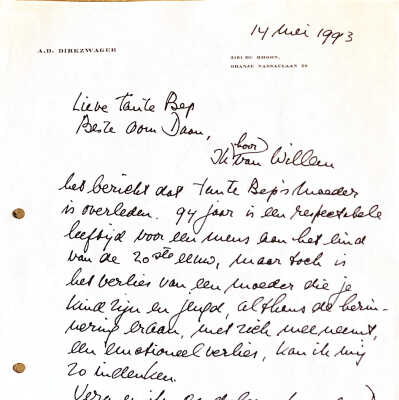 14 Mei 1993
A.D. DIRKZWAGER
3161 DC RHOON,
ORANJE NASSAULAAN 20
Lieve tante Bep
Beste oom Daan,
hoor
Ik van Willem
het bericht dat tante Bep's moeder
is overleden. 94 jaar is een respectabele
leeftijd voor een mens aan het eind
van de 20ste eeuw, maar toch is
het verlies van een moeder die je
kind zijn en jeugd, althans de herin-
nering eraan, met zich meeneemt,
een emotioneel verlies, kan ik mij
zo indenken.
Vera en ik